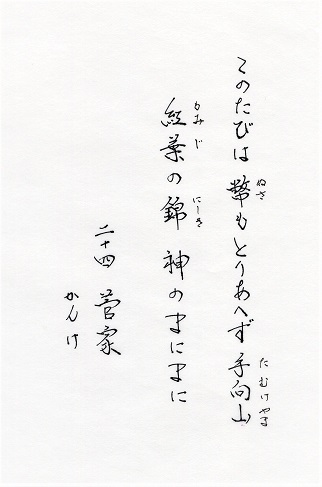 このたびは 幣もとりあへず 手向山
ぬさ
たむけやま
紅葉の錦 神のまにまに
もみじ
にしき
二十四 菅家
かんけ